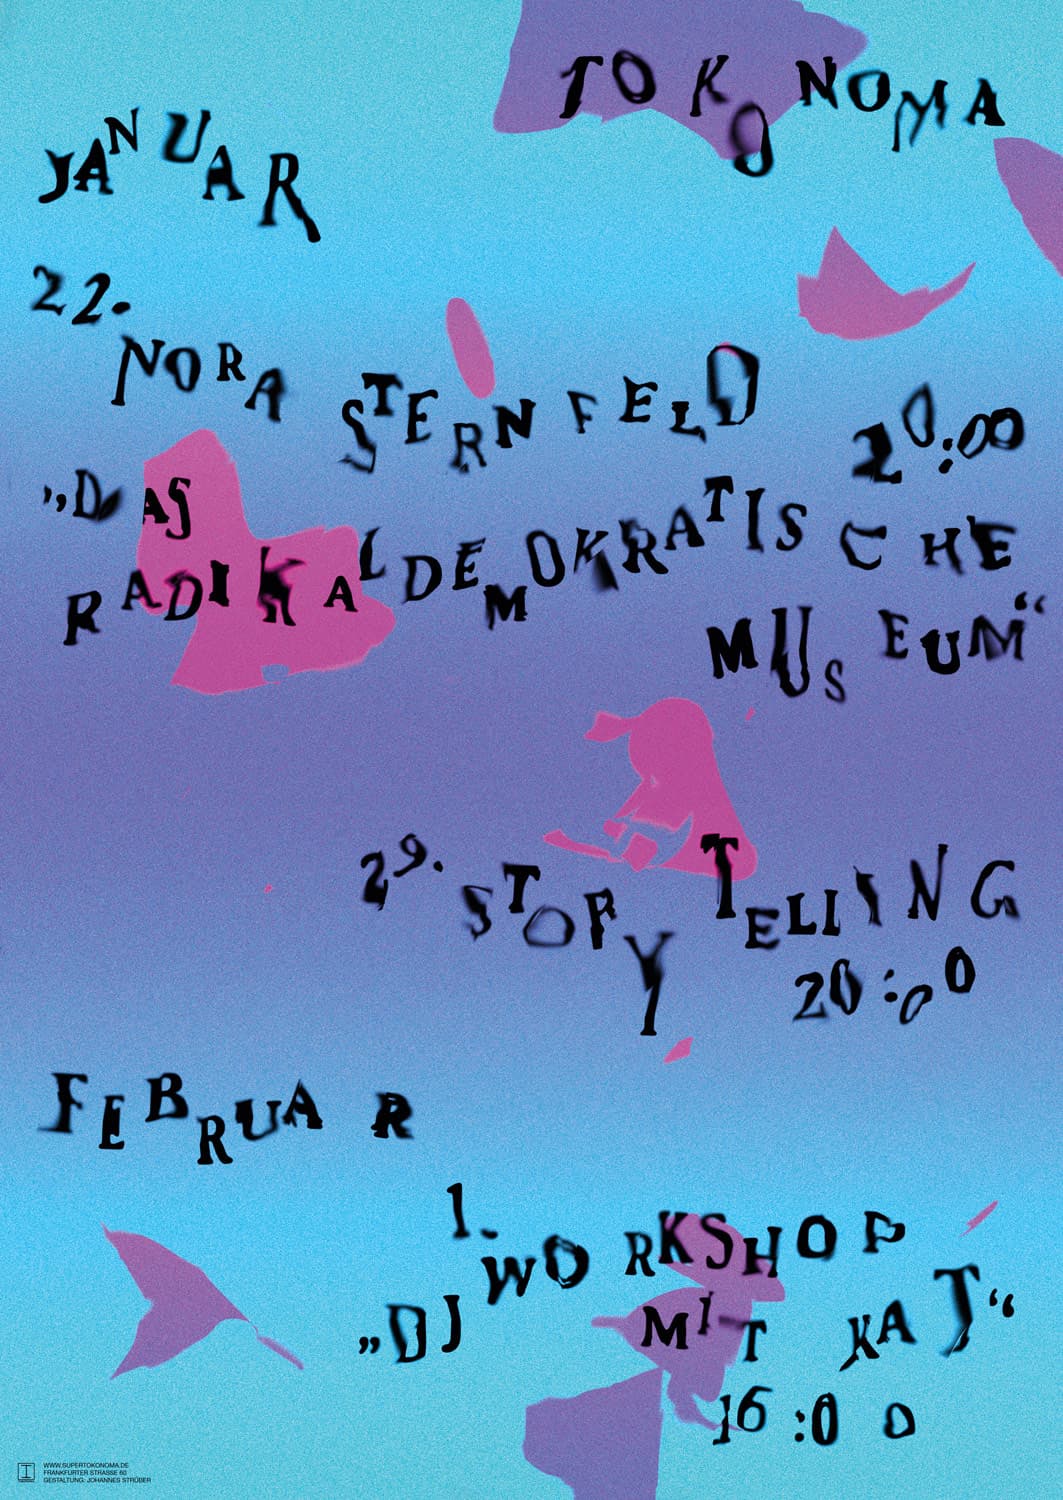 TOKONOMA
JANUAR
22.
NORA STERNFELD
20:00
„DAS
RADIKALDEMOKRATISCHE
MUSEUM“
29. STORY TELLING
20:00
FEBRUAR
1.
„DJ WORKSHOP
MIT KAT“
16:00
WWW.SUPERTOKONOMA.DE
FRANKFURTER STRASSE 60
GESTALTUNG: JOHANNES STRÜBER